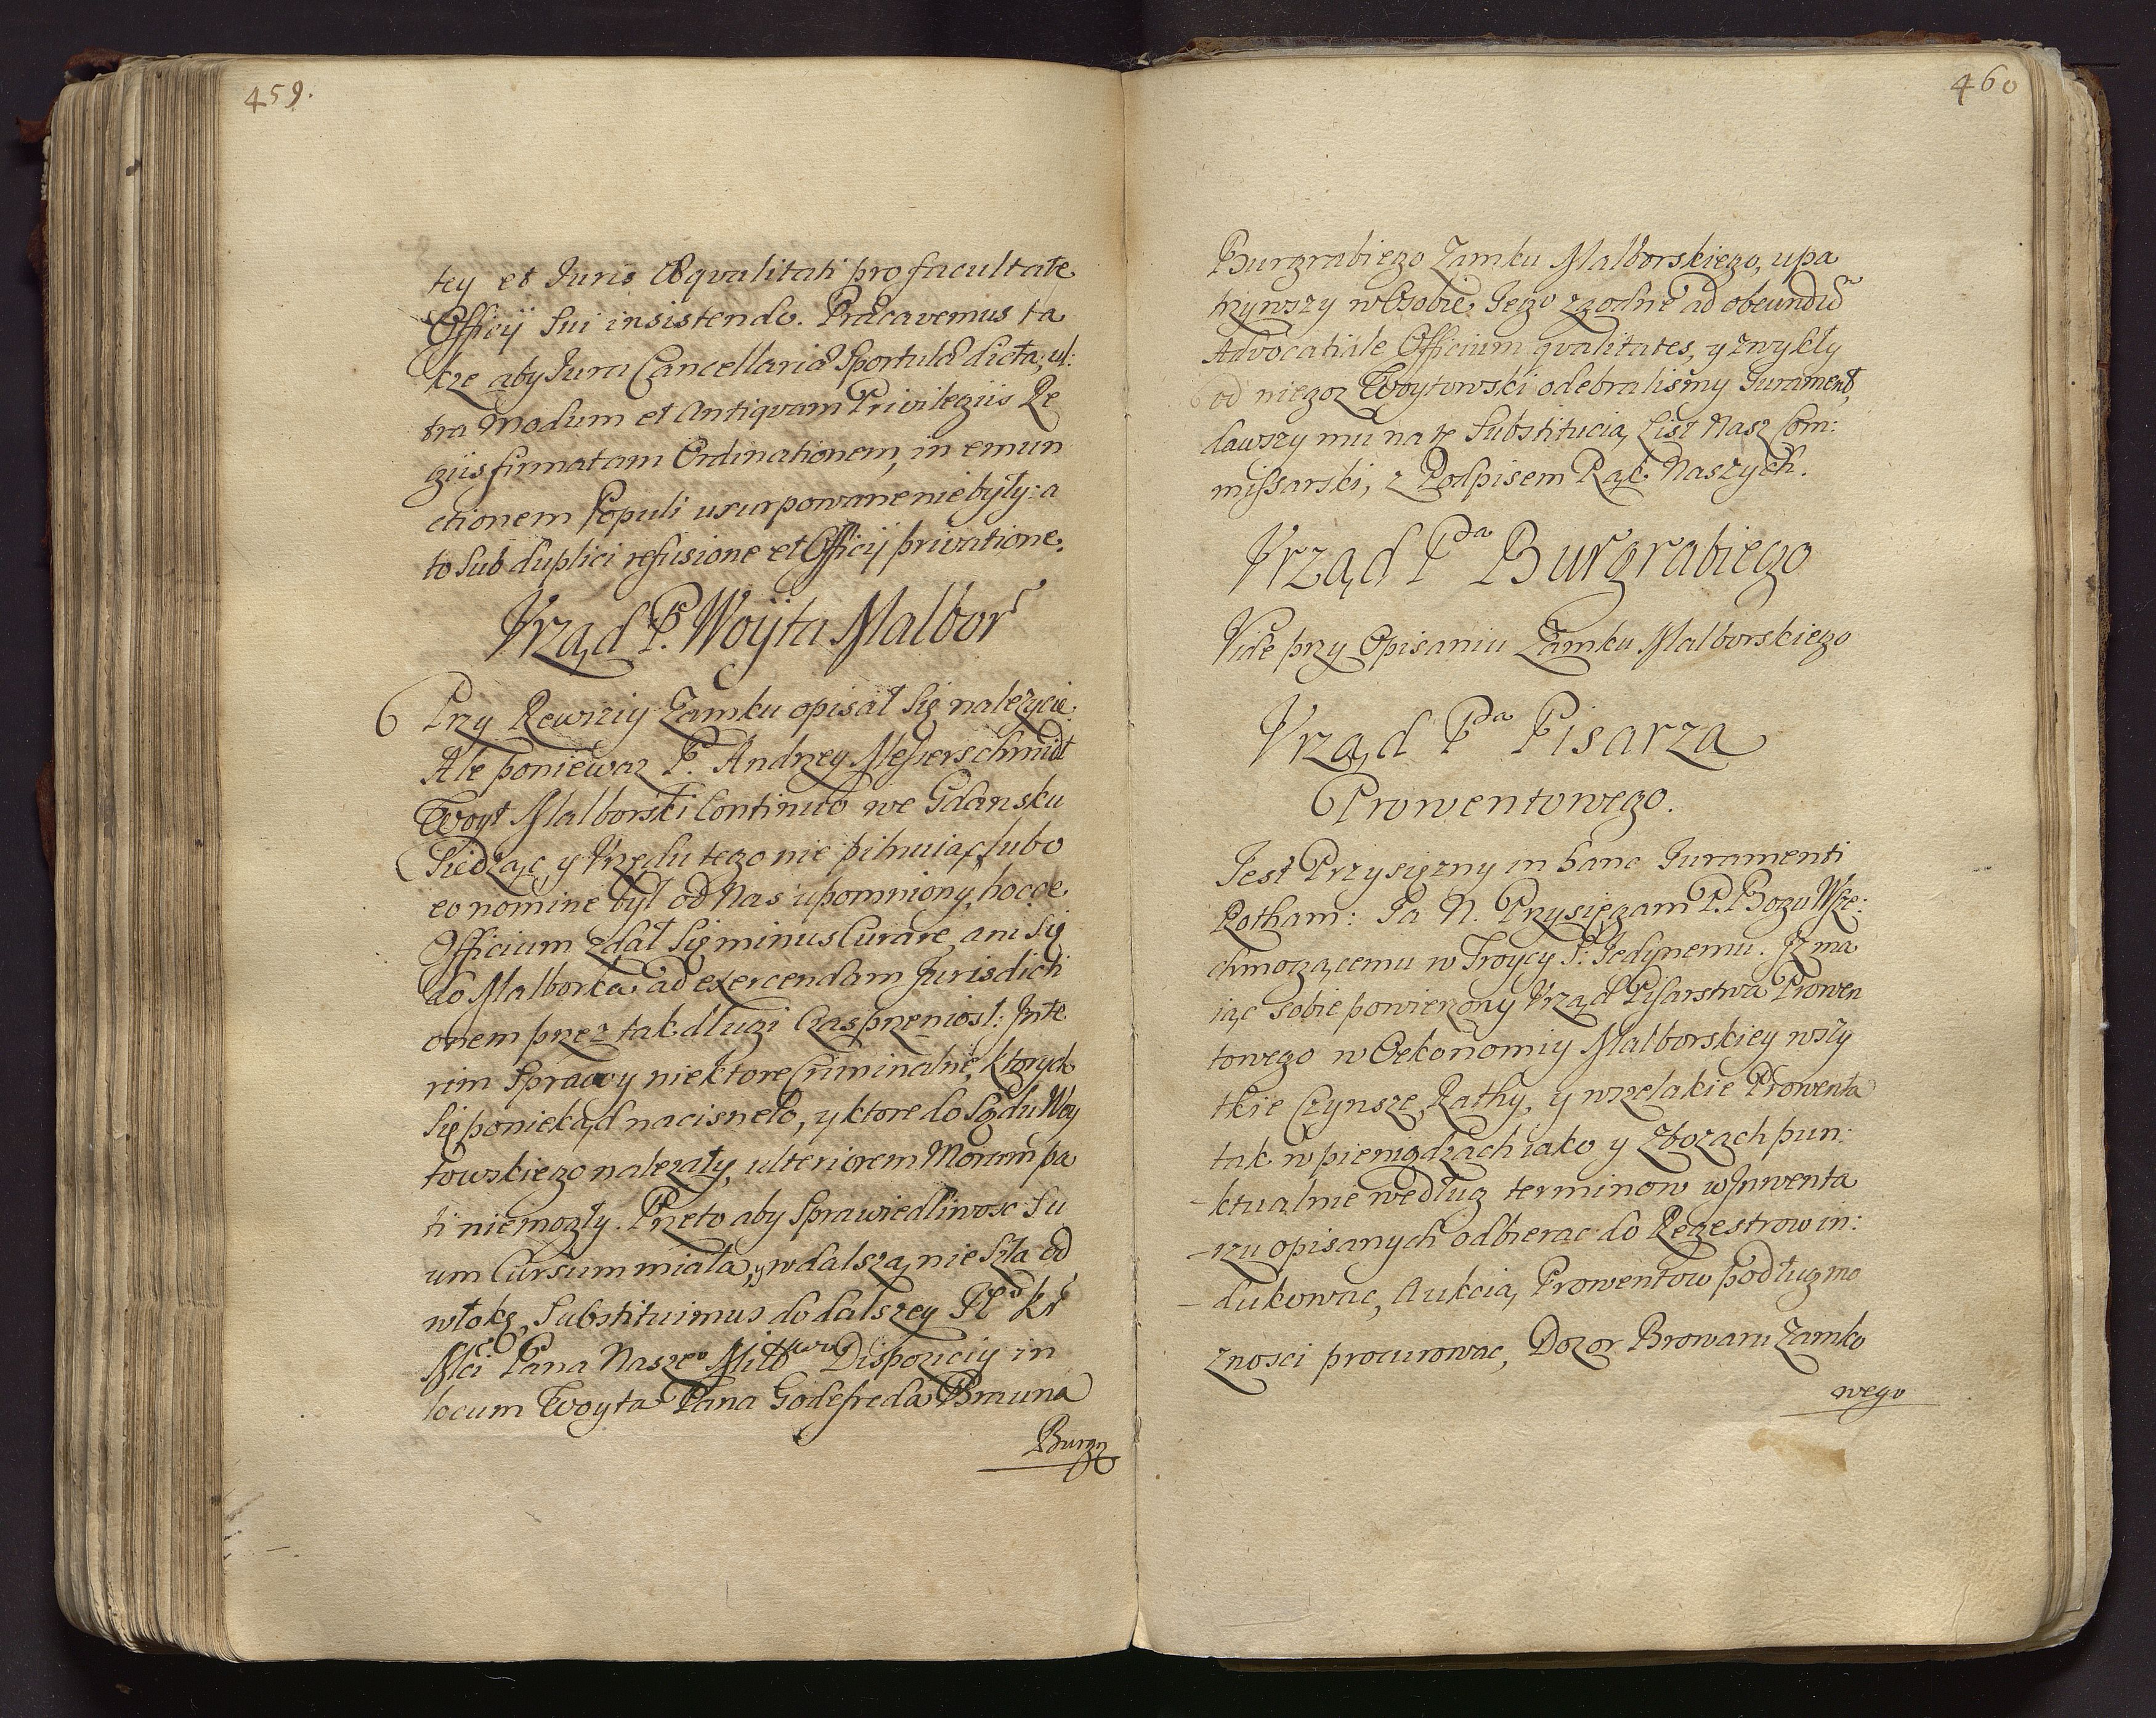 459.
tey et Juris Æqvalitati pro facultate
Officij Sui insistendo. Præcavemus ta
kże aby Jura Cancellariæ Sportulæ dicta, ul:
tra modum et Antiqvam Privilegiis Re
giis firmatam Ordinationem, in emun
ctionem Populi usurpowane nie były: a
to Sub duplici refusione et Officij privatione.
Vrząd P. Woyta Malbor
6 Przy Rewiziy Zamku opisał się należycie.
Ale ponieważ P. Andrzey Messerschmidt
Woyt Malborski Continuo we Gdansku
Siedząc, y Vrzędu tego nie pilnuiąc, lubo
eo nomine był od Nas upomniony, hocce
Officium zdał się minus Curare, ani się
do Malborka ad exercendam Jurisdicti
onem przez tak dlugi Czas przeniosł: Inte
rim Sprawy niektore Criminalne, ktorych
Się poniekąd nacisneło, y ktore do Sądu Woy
towskiego należały, ulteriorem Moram pa
ti niemogły. Przeto aby Sprawiedliwosc Su
um Cursum miała, y w dalszą nie szła od
włokę, Substituimus do dalszey JK Kr
Mći Pana Nasze° Miłłwo Dispoziciy in
locum Woyta Pana Godefreda Brauna
Burgr
460
Burgrabiego Zamku Malborskiego, upa
trzywszy w Osobie Jego zgodne ad obeundū
Advocatiale Officium qvalitates, y zwykły
od niegoz Woytowski odebralismy Jurament,
dawszy mu na te Substitucią List Nasz Com:
missarski, z Podpisem Rąk Naszych.
Vrząd Pda Burgrabiego
Vide przy Opisaniu Zamku Malborskiego
Vrząd Pda Pisarza
Prowentowego.
Jest Przysiężny in hanc Juramenti
Rotham: Ja N. Przysięgam P. Bogu Wsze:
chmogącemu w Troycy S: Jedynemu. Iz ma
iąc sobie powierzony Vrząd Pisarstwa Prowen
towego w Oekonomiy Malborskiey wszy
tkie Czynsze, Rathy, y wszelakie Prowenta
tak w pieniądzach iako y Zbozach pun:
-ktualnie według terminow w Inwenta
-rzu opisanych odbierac do Regestrow in:
-dukowac, Aukcią Prowentow podług mo
znosci procurowac, Dozor Browaru Zamko
wego